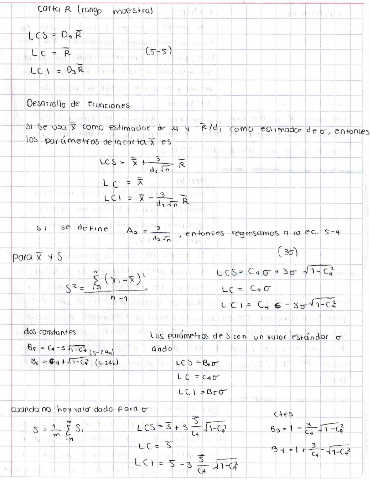 Carta R (rango muestral)
LCS = D₄R̄
LC = R̄ (5-5)
LCI = D₃R̄
Desarrollo de funciones
si se usa x̄ como estimador de μ y R̄/d₂ como estimador de σ, entonces
los parámetros de la carta x̄ es
LCS = x̄ + 3/(d₂√n) R̄
LC = x̄
LCI = x̄ - 3/(d₂√n) R̄
si se define A₂ = 3/(d₂√n), entonces regresamos a la ec. 5-4
para x̄ y S
S² = Σ(xᵢ-x̄)²/(n-1)
LCS = C₄σ + 3σ√(1-C₄²)
LC = C₄σ
LCI = C₄σ - 3σ√(1-C₄²)
dos constantes
B₅ = C₄-3√(1-C₄²)
B₆ = C₄+3√(1-C₄²)
Los parámetros de S con un valor estándar σ
dando
LCS = B₆σ
LC = C₄σ
LCI = B₅σ
cuando no hay valor dado para σ
S̄ = 1/m Σ Sᵢ
LCS = S̄ + 3 S̄/C₄ √(1-C₄²)
LC = S̄
LCI = S̄ - 3 S̄/C₄ √(1-C₄²)
B₃ = 1 - 3/C₄ √(1-C₄²)
B₄ = 1 + 3/C₄ √(1-C₄²)